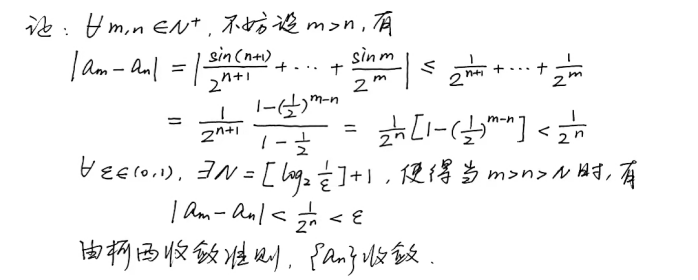 证：∀m,n∈N⁺，不妨设 m>n，有
|aₘ-aₙ| = |sin(n+1)/2ⁿ⁺¹ + ⋯ + sin m/2ᵐ| ≤ 1/2ⁿ⁺¹ + ⋯ + 1/2ᵐ
= 1/2ⁿ⁺¹ · (1-(1/2)ᵐ⁻ⁿ)/(1-1/2) = 1/2ⁿ[1-(1/2)ᵐ⁻ⁿ] < 1/2ⁿ
∀ε∈(0,1)，∃N=[log₂ 1/ε]+1，使得当 m>n>N 时，有
|aₘ-aₙ| < 1/2ⁿ < ε
由柯西收敛准则，{aₙ}收敛．